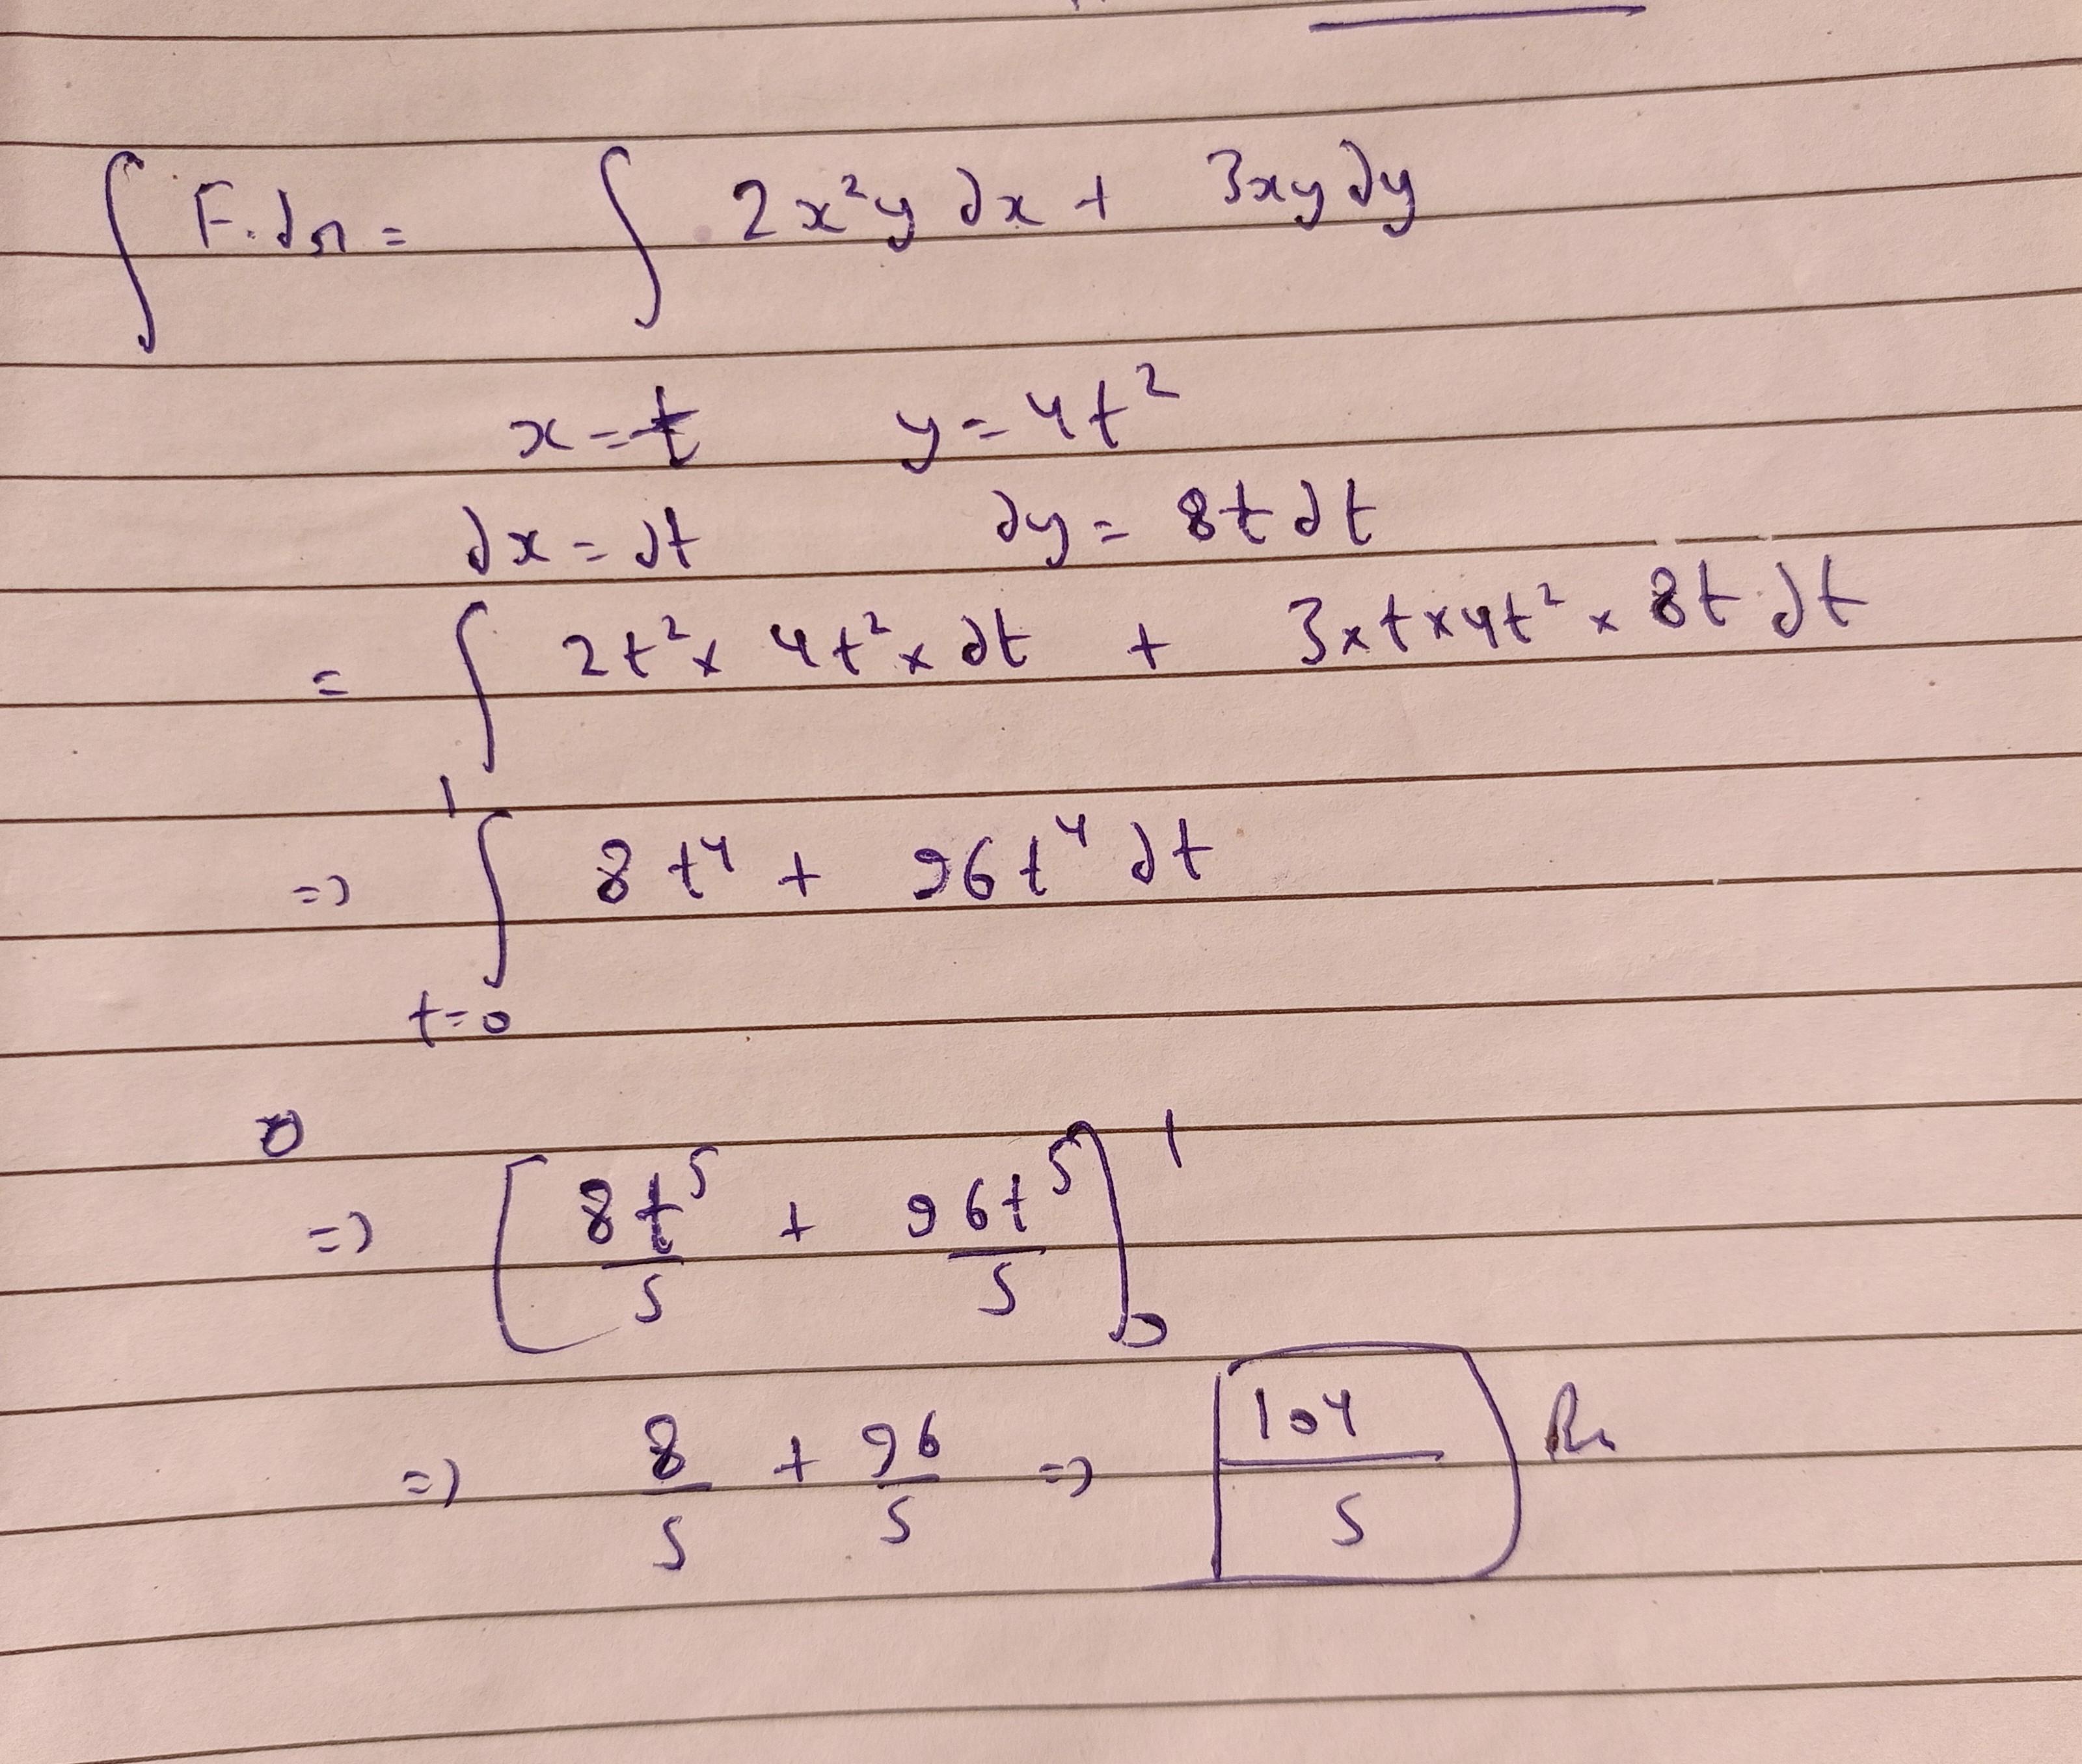 ∫ F.dr = ∫ 2x²y dx + 3xy dy
x = t y = 4t²
dx = dt dy = 8t dt
= ∫ 2t² × 4t² × dt + 3×t×4t² × 8t.dt
=> ∫_{t=0}^{1} 8t⁴ + 96t⁴ dt
=> [8t⁵/5 + 96t⁵/5]₀¹
=> 8/5 + 96/5 => 104/5